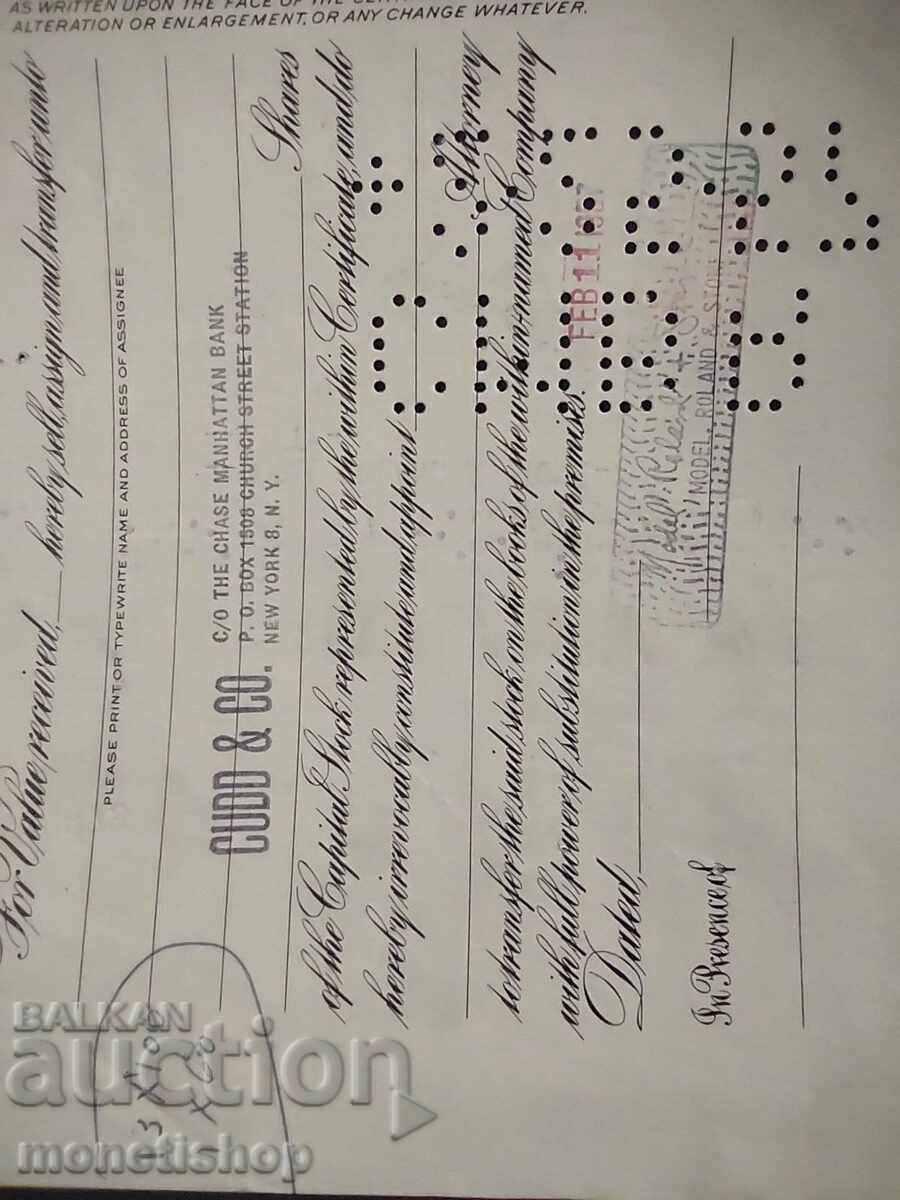 AS WRITTEN UPON THE FACE OF THE
ALTERATION OR ENLARGEMENT, OR ANY CHANGE WHATEVER.
For Value received, hereby sell, assign, and transfer unto
PLEASE PRINT OR TYPEWRITE NAME AND ADDRESS OF ASSIGNEE
CUDD & CO.
C/O THE CHASE MANHATTAN BANK
P. O. BOX 1508 CHURCH STREET STATION
NEW YORK 8, N. Y.
Shares
of the Capital Stock represented by the within Certificate, and do
hereby irrevocably constitute and appoint
Attorney
to transfer the said stock on the books of the within-named Company
with full power of substitution in the premises.
FEB 11 1957
Dated,
MODEL, ROLAND & STONE
In Presence of
BALKAN
auction
monetishop